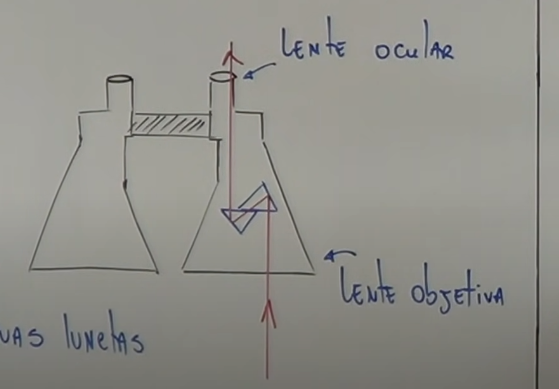 Lente ocular
Lente objetiva
lunetas